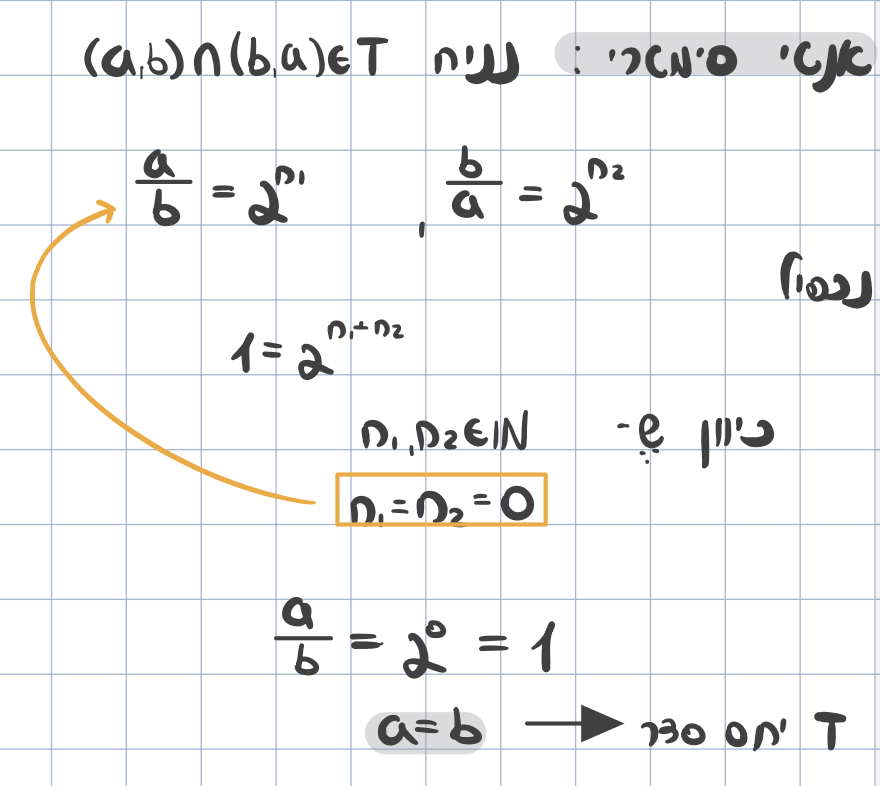 אנטי סימטרי : נניח (a,b)∩(b,a)∈T
a/b = 2^{n₁} , b/a = 2^{n₂}
נכפול
1 = 2^{n₁+n₂}
כיוון ש- n₁,n₂∈ℕ
n₁=n₂=0
a/b = 2^0 = 1
a=b → T יחס סדר